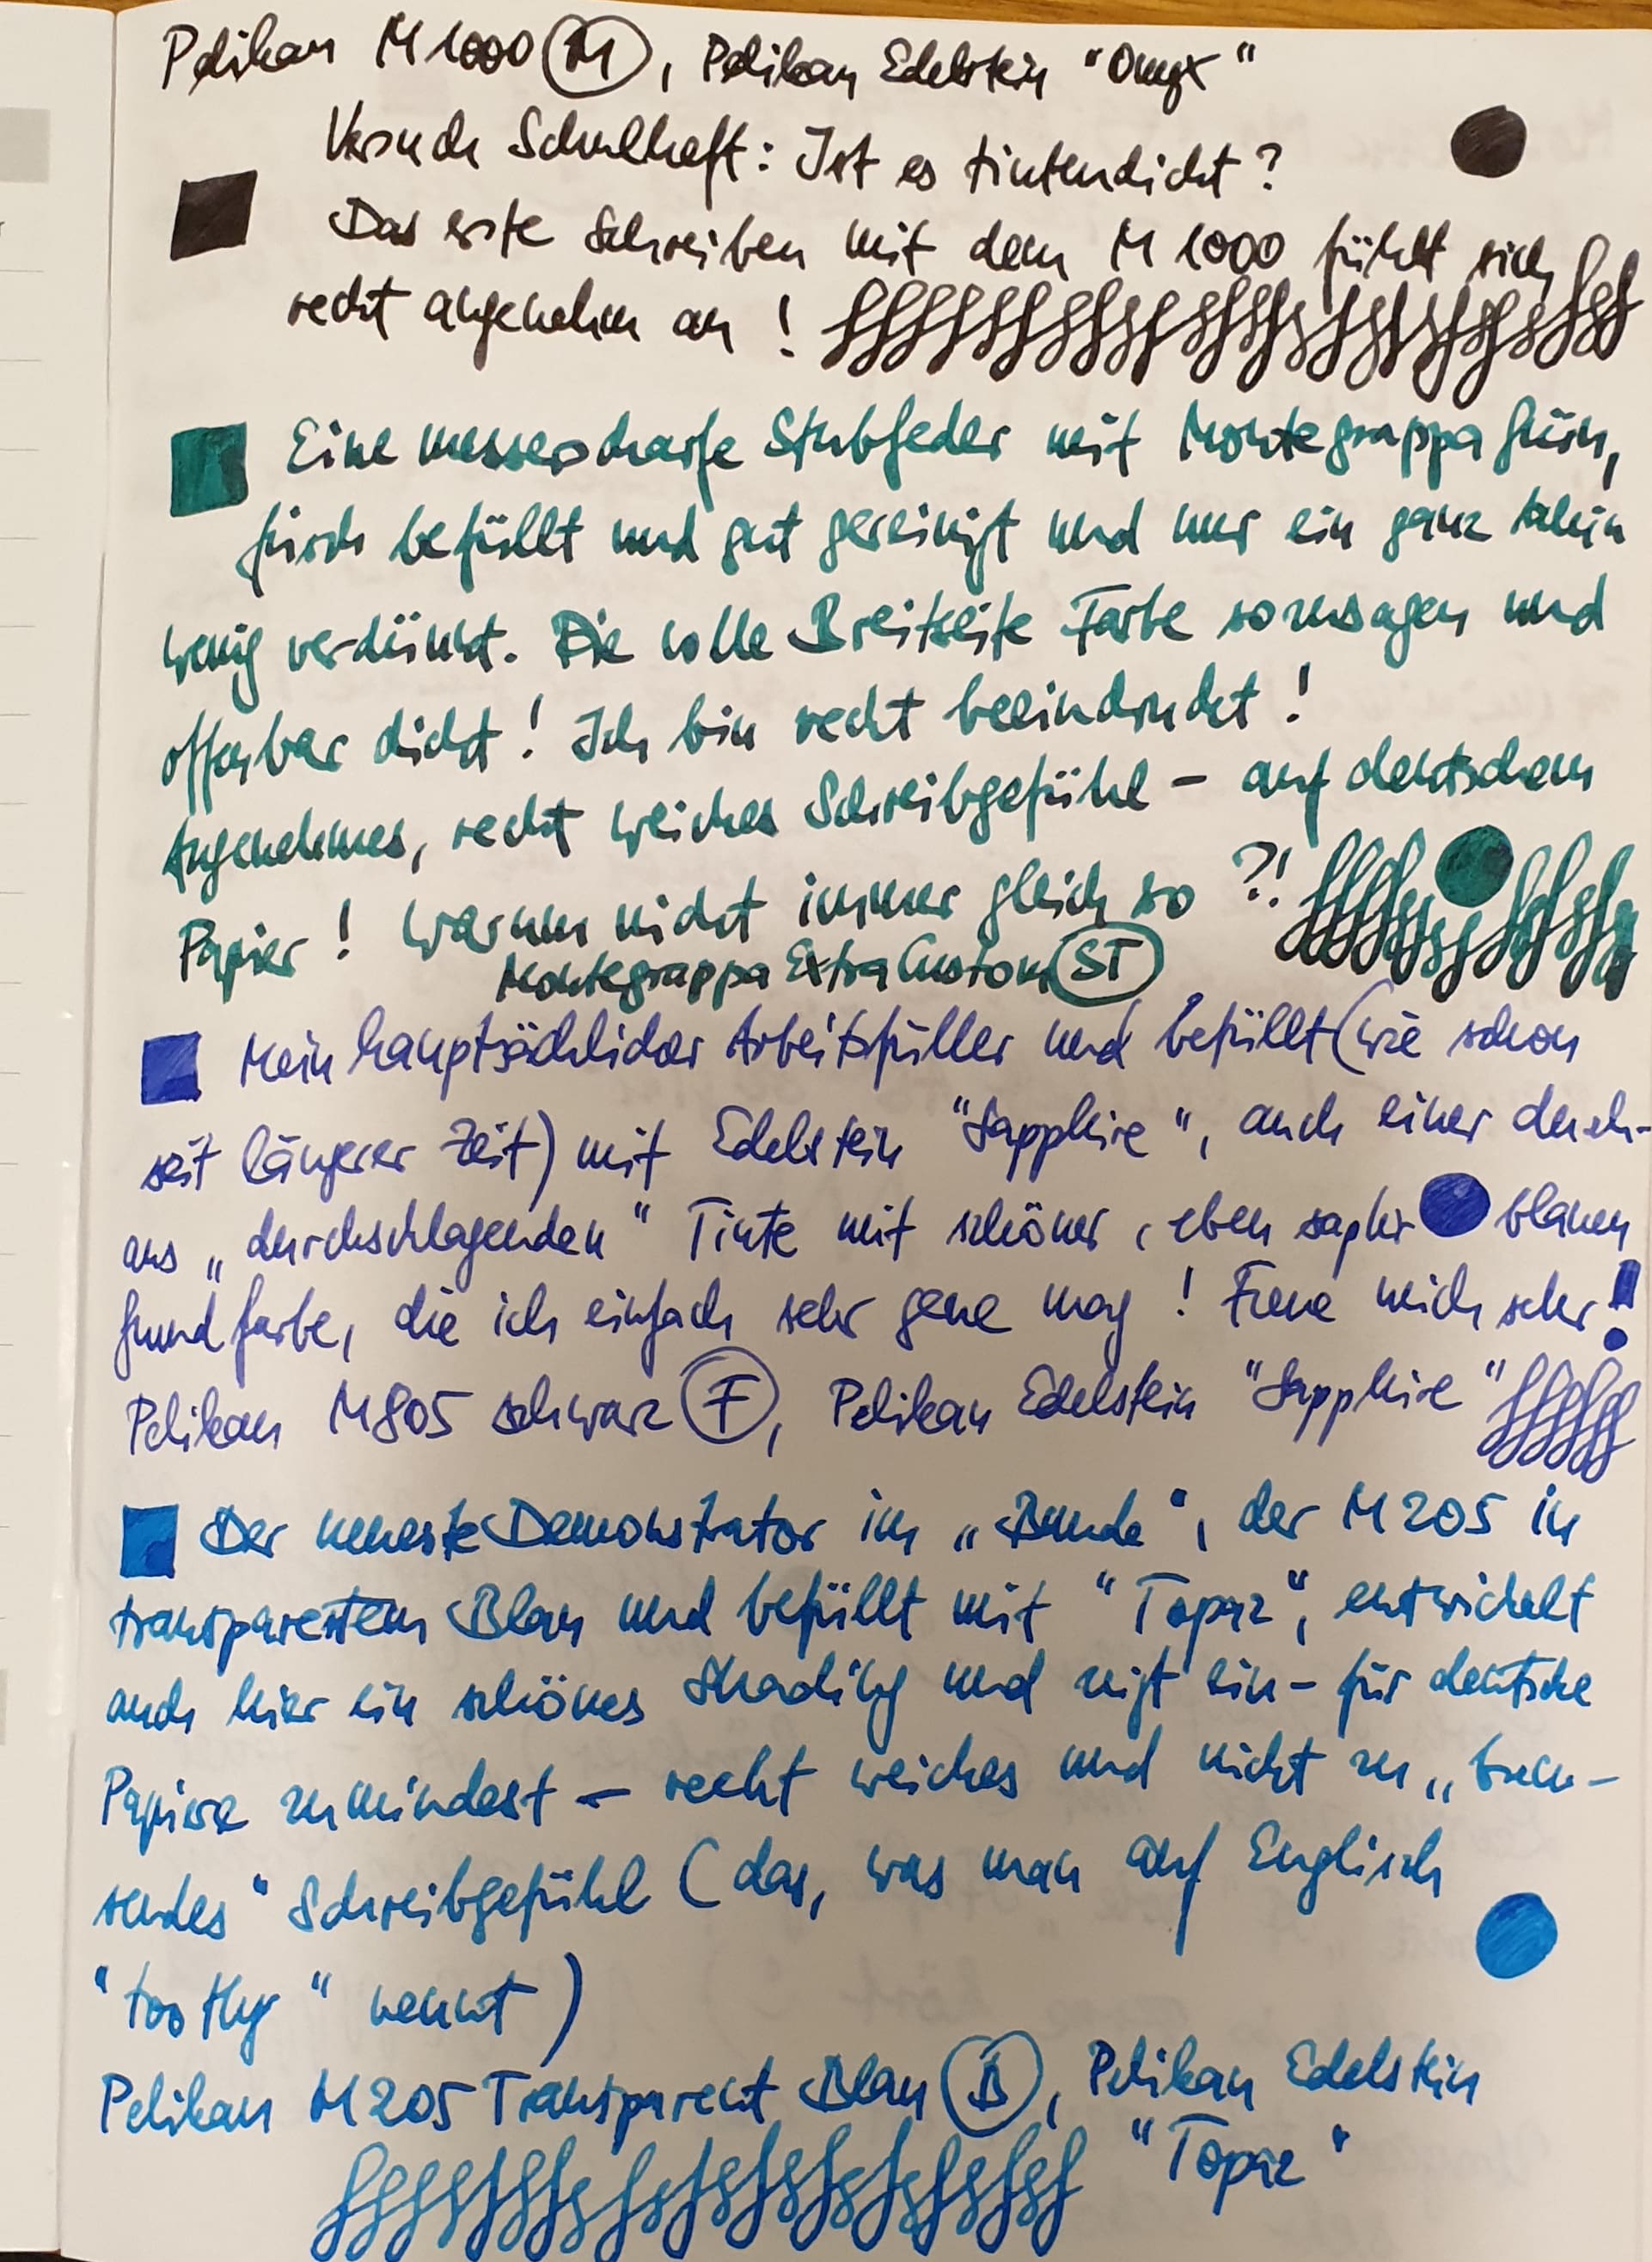 Pelikan M1000 (M), Pelikan Edelstein "Onyx"
Versuch Schulheft: Ist es tintendicht?
Das erste Schreiben mit dem M1000 fühlt sich
recht angenehm an!
Eine messerscharfe Stubfeder mit Montegrappa Grün,
frisch befüllt und gut gereinigt und nur ein ganz klein
wenig verdünnt. Die volle Breitseite Farbe sozusagen und
offenbar dicht! Ich bin recht beeindruckt!
Angenehmes, recht weiches Schreibgefühl – auf deutschem
Papier! Warum nicht immer gleich so?!
Montegrappa Extra Custom (ST)
Mein hauptsächlicher Arbeitsfüller und befüllt (wie schon
seit längerer Zeit) mit Edelstein "Sapphire", auch einer durch-
aus „durchschlagenden" Tinte mit schöner, eben saphir blauen
Grundfarbe, die ich einfach sehr gerne mag! Freue mich sehr!
Pelikan M805 schwarz (F), Pelikan Edelstein "Sapphire"
Der neueste Demonstrator im „Bunde", der M205 in
transparentem Blau und befüllt mit "Topaz", entwickelt
auch hier ein schönes Shading und zeigt ein – für deutsche
Papiere zumindest – recht weiches und nicht zu „brem-
sendes" Schreibgefühl (das, was man auf Englisch
"toothy" nennt)
Pelikan M205 Transparent Blau (B), Pelikan Edelstein
"Topaz"